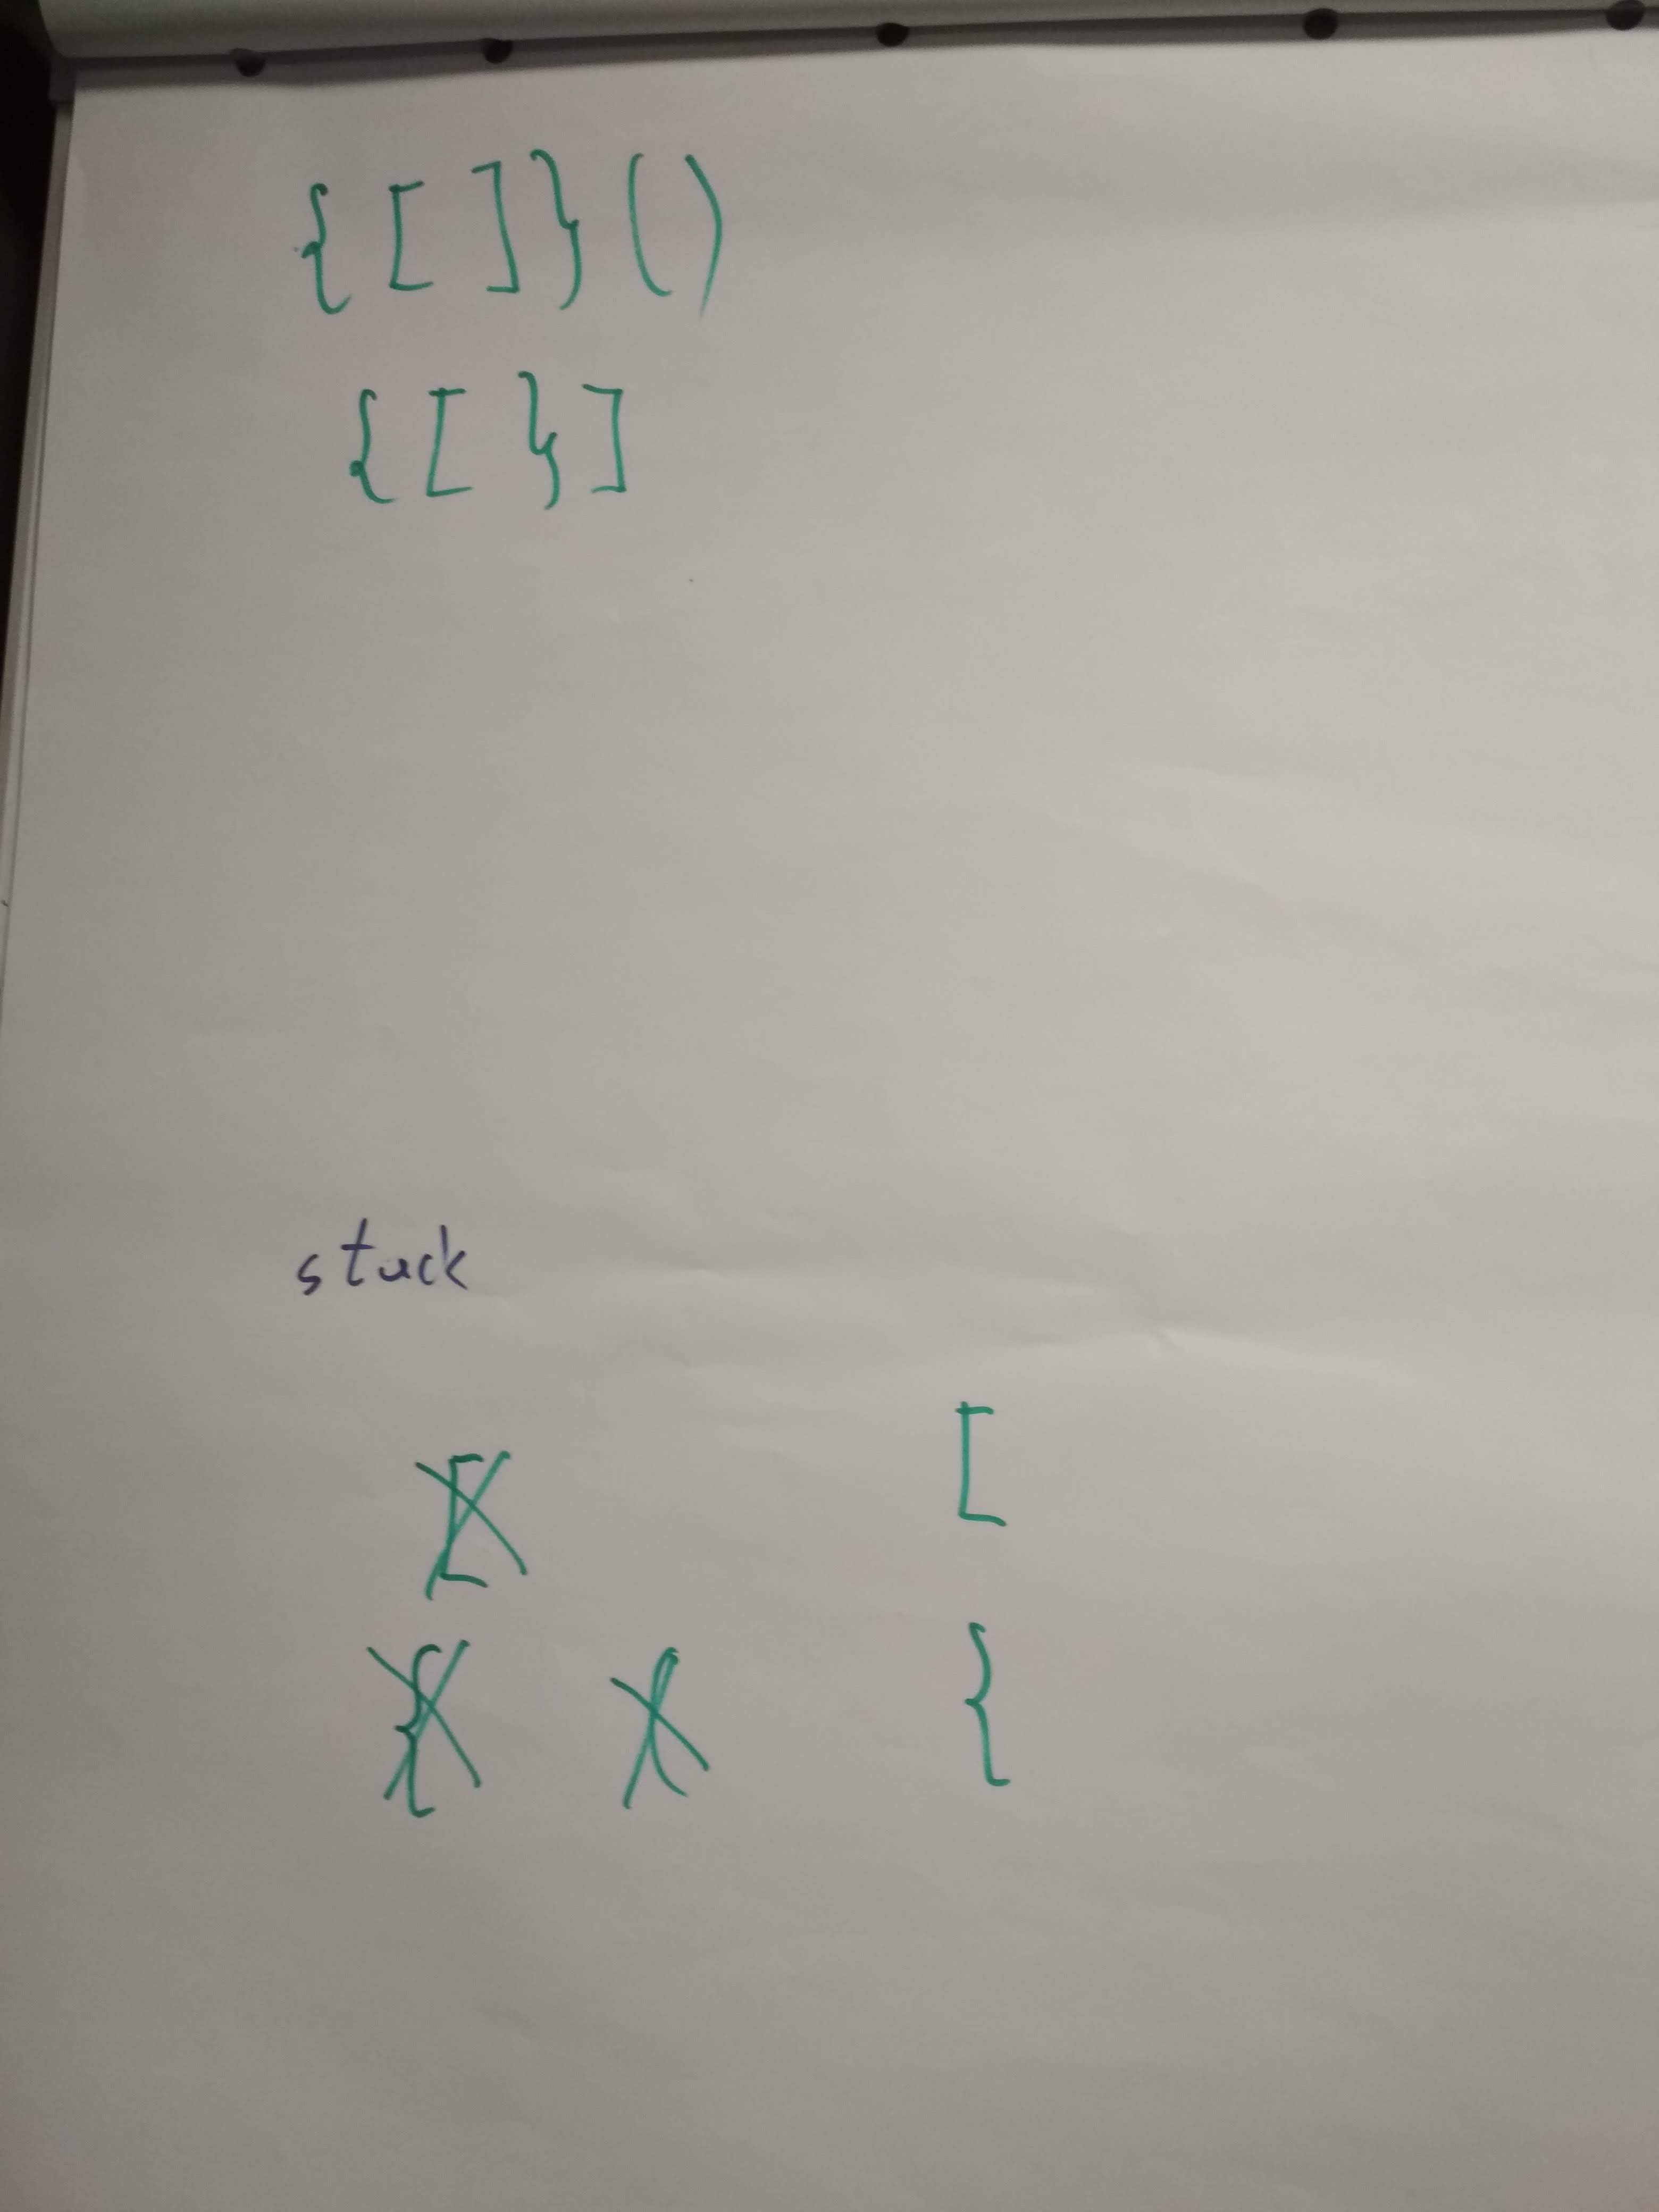 {[]}()
{[}]
stack
[ [
{ ( {